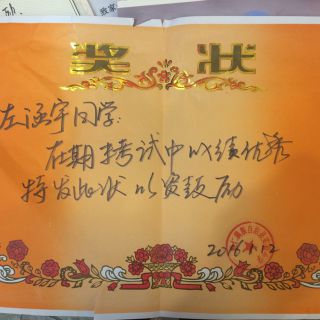 奖状
左涵宇同学:
在期考试中成绩优秀
特发此状以资鼓励
2016.1.12